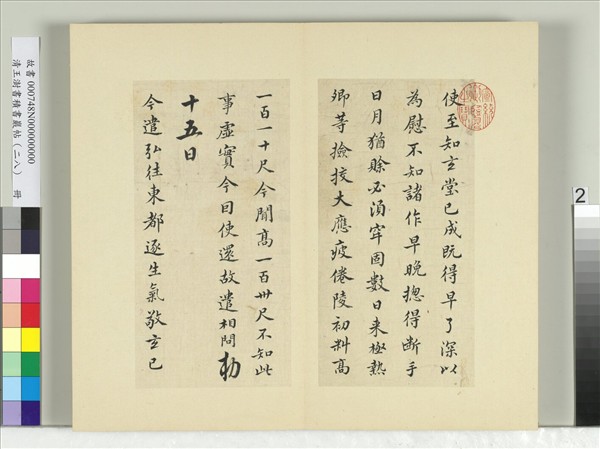 使至知玄堂已成既得早了深以
為慰不知諸作早晚揔得斷手
日月猶賒必須牢固數日來極熱
卿等撿挍大應疲倦陵初料高
一百一十尺今聞高一百卅尺不知此
事虛實今因使還故遣相問勅
十五日
今遣弘往東都逐生氣敬玄已
故書000748N000000000
清王澍書積書巖帖(二八) 冊
2